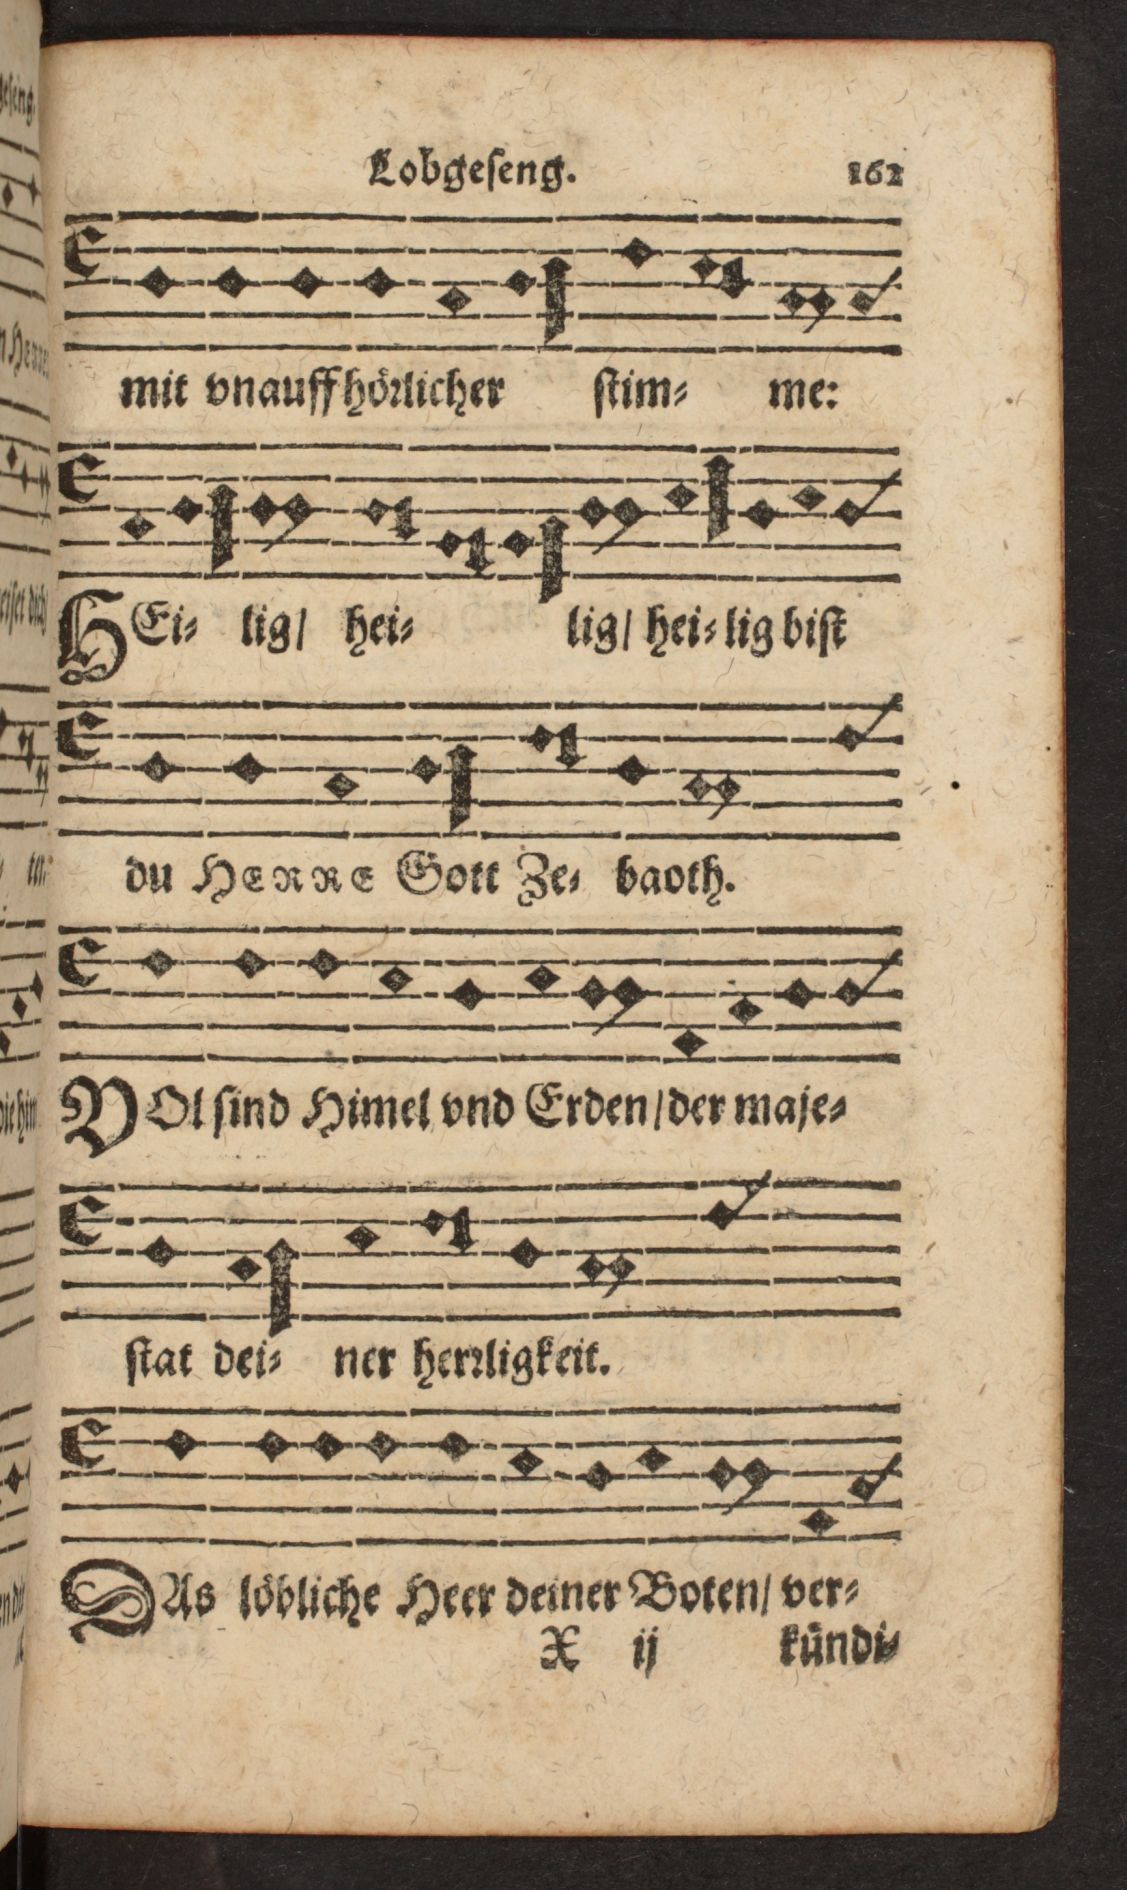 Lobgeseng. 162
mit vnauffhörlicher stim- me:
HEi- lig/ hei- lig/ hei-lig bist
du HERRE Gott Ze- baoth.
VOl sind Himel vnd Erden/der maje-
stat dei- ner herrligkeit.
DAs löbliche Heer deiner Boten/ ver-
X ij kündi-